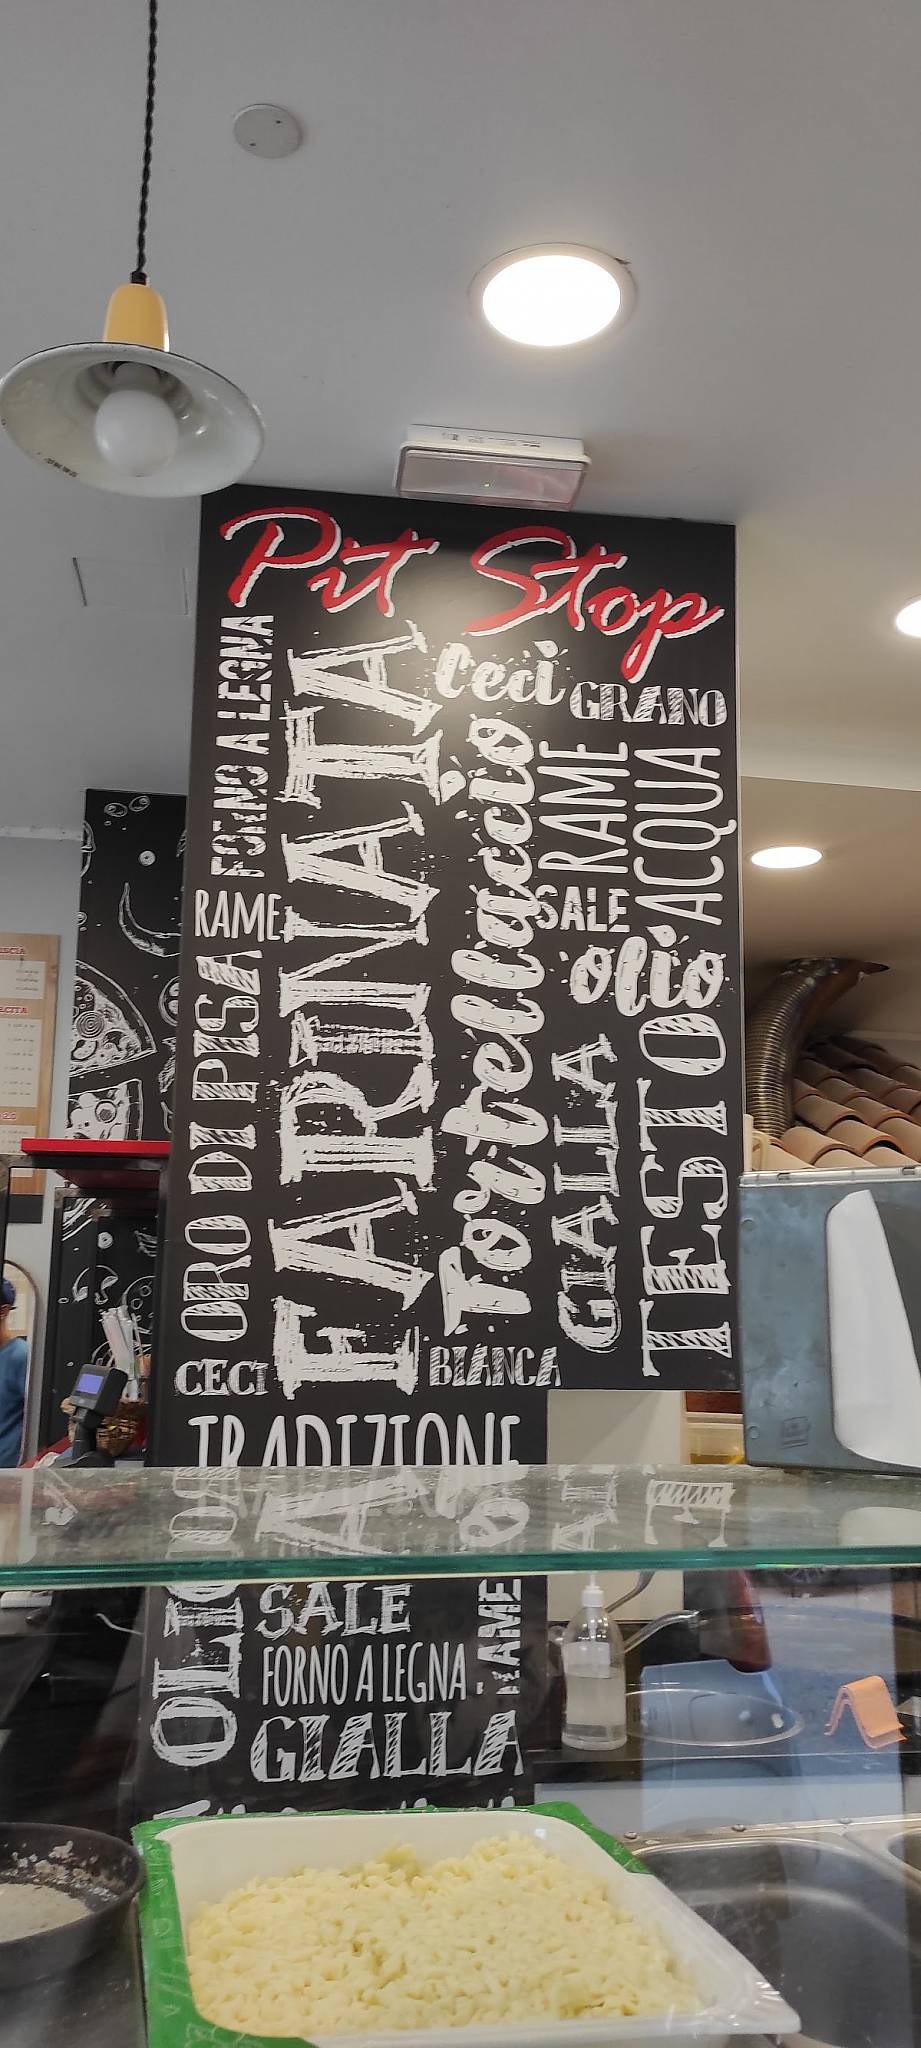 Pit Stop
FORNO A LEGNA
FARINATA
Ceci
GRANO
Tortellaccio
RAME
ACQUA
RAME
SALE
olio
ORO DI PISA
GIALLA
TESTO
CECI
BIANCA
TRADIZIONE
OLIO
SALE
RAME
FORNO A LEGNA
GIALLA